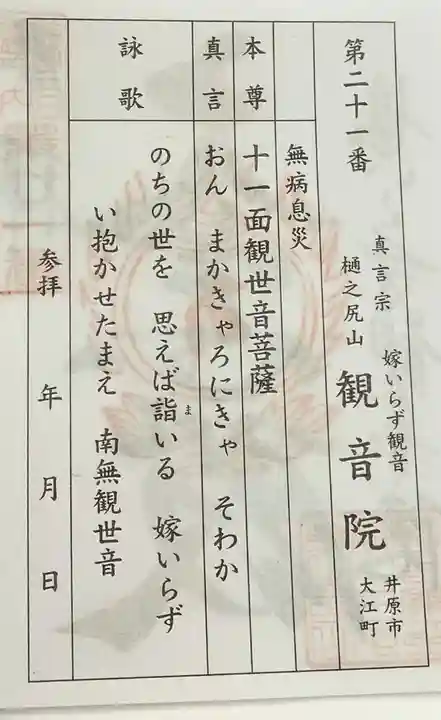 第二十一番
真言宗
樋之尻山
嫁いらず観音
観音院
井原市
大江町
無病息災
本尊 十一面観世音菩薩
真言 おん まかきゃろにきゃ そわか
詠歌 のちの世を 思えば詣いる 嫁いらず
ま
い抱かせたまえ 南無観世音
参拝 年 月 日